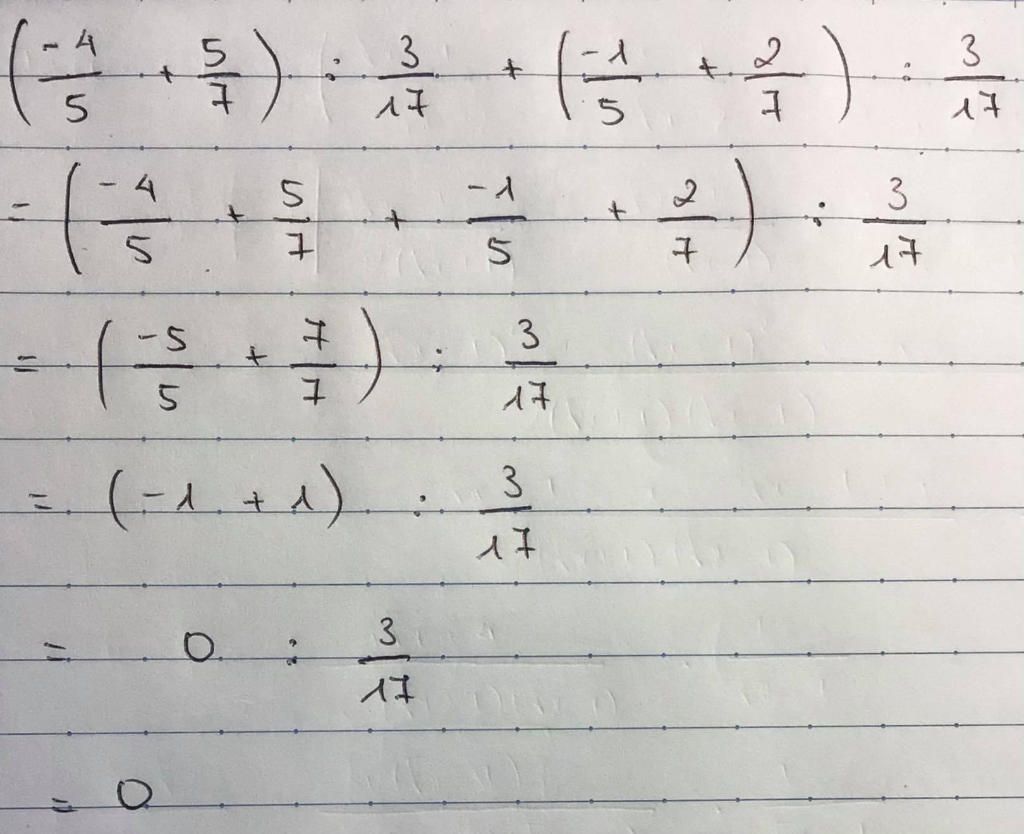 (-4/5 + 5/7) : 3/17 + (-1/5 + 2/7) : 3/17
= (-4/5 + 5/7 + -1/5 + 2/7) : 3/17
= (-5/5 + 7/7) : 3/17
= (-1 + 1) : 3/17
= 0 : 3/17
= 0